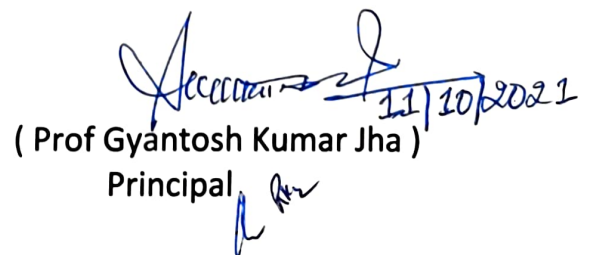 11/10/2021
( Prof Gyantosh Kumar Jha )
Principal